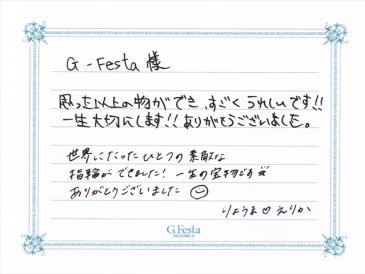 G-Festa 様
思った以上の物ができ、すごくうれしいです!!
一生大切にします!! ありがとうございました。
世界にたったひとつの素敵な
指輪ができました! 一生の宝物です
ありがとうございました
りょうま♡えりか
G.Festa